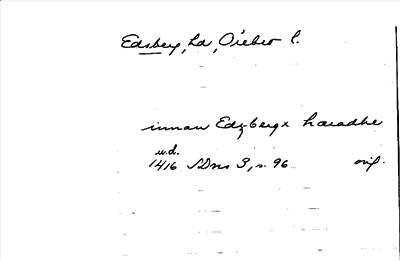 Edsberg, hd, Örebro l.
innan Edzbergx haradhe
u.d.
1416 SDns 3, s. 96 orig.